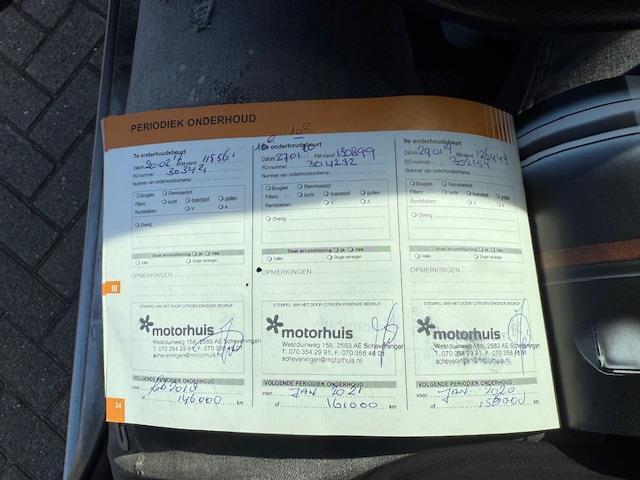 PERIODIEK ONDERHOUD
7e onderhoudsbeurt
Datum 20.02.17 KM-stand 115561
RO-nummer 30342
Nummer van onderhoudsschema:
Bougies Remvloeistof
Filters: lucht brandstof pollen
Remblokken: V A
Overig:
Staat airconditioning ja nee
Vullen Droger vervangen
OPMERKINGEN
STEMPEL VAN HET DOOR CITROËN ERKENDE BEDRIJF
motorhuis
Westduinweg 158, 2583 AE Scheveningen
T. 070 354 29 91, F. 070 358
scheveningen@motorhuis.nl
VOLGENDE PERIODIEK ONDERHOUD
voor
of 146.000 km
10e
onderhoudsbeurt
Datum 2701 KM-stand 130899
RO-nummer 304232
Nummer van onderhoudsschema:
Bougies Remvloeistof
Filters: lucht brandstof pollen
Remblokken: V A
Overig:
Staat airconditioning ja nee
Vullen Droger vervangen
OPMERKINGEN
STEMPEL VAN HET DOOR CITROËN ERKENDE BEDRIJF
motorhuis
Westduinweg 158, 2583 AE Scheveningen
T. 070 354 29 91, F. 070 358 46 01
scheveningen@motorhuis.nl
VOLGENDE PERIODIEK ONDERHOUD
voor JAN 2021
of 161000 km
9e onderhoudsbeurt
Datum 2901 KM-stand 125449
RO-nummer 302154
Nummer van onderhoudsschema:
Bougies Remvloeistof
Filters: lucht brandstof pollen
Remblokken: V A
Overig:
Staat airconditioning ja nee
Vullen Droger vervangen
OPMERKINGEN
STEMPEL VAN HET DOOR CITROËN ERKENDE BEDRIJF
motorhuis
Westduinweg 158, 2583 AE Scheveningen
T. 070 354 29 91, F. 070 358 46 01
scheveningen@motorhuis.nl
VOLGENDE PERIODIEK ONDERHOUD
voor JAN 2020
of 155000 km
III
34